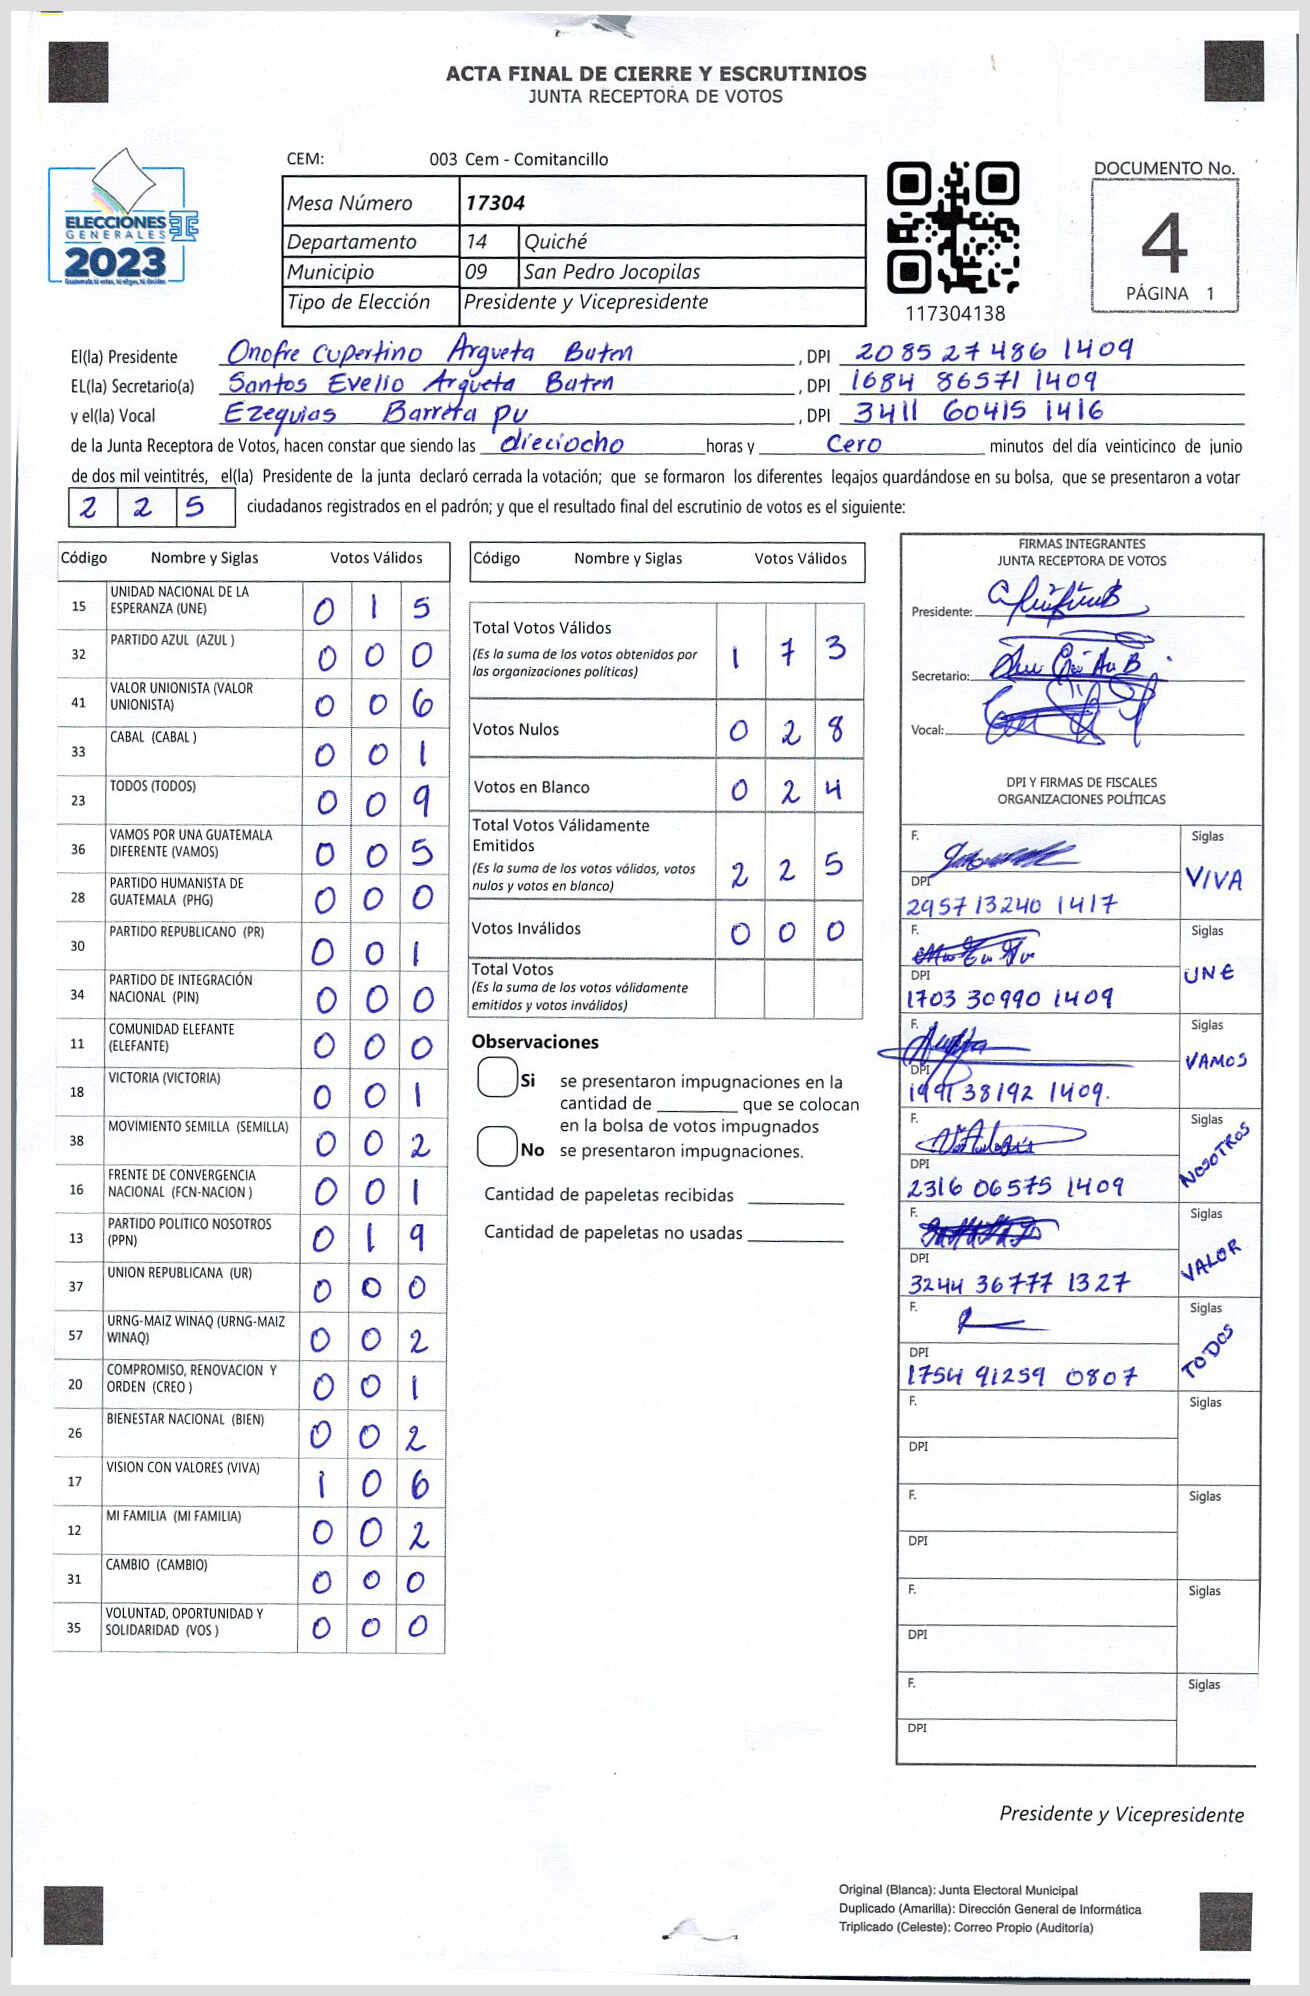 ACTA FINAL DE CIERRE Y ESCRUTINIOS
JUNTA RECEPTORA DE VOTOS
ELECCIONES
GENERALES
2023
CEM: 003 Cem - Comitancillo
Mesa Número 17304
Departamento 14 Quiché
Municipio 09 San Pedro Jocopilas
Tipo de Elección Presidente y Vicepresidente
117304138
DOCUMENTO No.
4
PÁGINA 1
El(la) Presidente Onofre Cupertino Argueta Baten, DPI 2085 27486 1409
EL(la) Secretario(a) Santos Evelio Argueta Baten, DPI 1684 86571 1409
y el(la) Vocal Ezequias Barreta pu, DPI 3411 60415 1416
de la Junta Receptora de Votos, hacen constar que siendo las dieciocho horas y Cero minutos del día veinticinco de junio
de dos mil veintitrés, el(la) Presidente de la junta declaró cerrada la votación; que se formaron los diferentes legajos guardándose en su bolsa, que se presentaron a votar
2 2 5 ciudadanos registrados en el padrón; y que el resultado final del escrutinio de votos es el siguiente:
Código Nombre y Siglas Votos Válidos
15 UNIDAD NACIONAL DE LA ESPERANZA (UNE) 0 1 5
32 PARTIDO AZUL (AZUL ) 0 0 0
41 VALOR UNIONISTA (VALOR UNIONISTA) 0 0 6
33 CABAL (CABAL ) 0 0 1
23 TODOS (TODOS) 0 0 9
36 VAMOS POR UNA GUATEMALA DIFERENTE (VAMOS) 0 0 5
28 PARTIDO HUMANISTA DE GUATEMALA (PHG) 0 0 0
30 PARTIDO REPUBLICANO (PR) 0 0 1
34 PARTIDO DE INTEGRACIÓN NACIONAL (PIN) 0 0 0
11 COMUNIDAD ELEFANTE (ELEFANTE) 0 0 0
18 VICTORIA (VICTORIA) 0 0 1
38 MOVIMIENTO SEMILLA (SEMILLA) 0 0 2
16 FRENTE DE CONVERGENCIA NACIONAL (FCN-NACION ) 0 0 1
13 PARTIDO POLITICO NOSOTROS (PPN) 0 1 9
37 UNION REPUBLICANA (UR) 0 0 0
57 URNG-MAIZ WINAQ (URNG-MAIZ WINAQ) 0 0 2
20 COMPROMISO, RENOVACION Y ORDEN (CREO ) 0 0 1
26 BIENESTAR NACIONAL (BIEN) 0 0 2
17 VISION CON VALORES (VIVA) 1 0 6
12 MI FAMILIA (MI FAMILIA) 0 0 2
31 CAMBIO (CAMBIO) 0 0 0
35 VOLUNTAD, OPORTUNIDAD Y SOLIDARIDAD (VOS ) 0 0 0
Código Nombre y Siglas Votos Válidos
Total Votos Válidos 1 7 3
(Es la suma de los votos obtenidos por
las organizaciones políticas)
Votos Nulos 0 2 8
Votos en Blanco 0 2 4
Total Votos Válidamente
Emitidos 2 2 5
(Es la suma de los votos válidos, votos
nulos y votos en blanco)
Votos Inválidos 0 0 0
Total Votos
(Es la suma de los votos válidamente
emitidos y votos inválidos)
Observaciones
Si se presentaron impugnaciones en la
cantidad de ________ que se colocan
en la bolsa de votos impugnados
No se presentaron impugnaciones.
Cantidad de papeletas recibidas
Cantidad de papeletas no usadas
FIRMAS INTEGRANTES
JUNTA RECEPTORA DE VOTOS
Presidente:
Secretario:
Vocal:
DPI Y FIRMAS DE FISCALES
ORGANIZACIONES POLÍTICAS
F. Siglas
DPI VIVA
2957 13240 1417
F. Siglas
DPI UNE
1703 30990 1409
F. Siglas
DPI VAMOS
1991 38192 1409.
F. Siglas
DPI NOSOTROS
2316 06575 1409
F. Siglas
DPI VALOR
3244 36777 1327
F. Siglas
DPI TODOS
1754 91259 0807
F. Siglas
DPI
F. Siglas
DPI
F. Siglas
DPI
F. Siglas
DPI
Presidente y Vicepresidente
Original (Blanca): Junta Electoral Municipal
Duplicado (Amarilla): Dirección General de Informática
Triplicado (Celeste): Correo Propio (Auditoría)